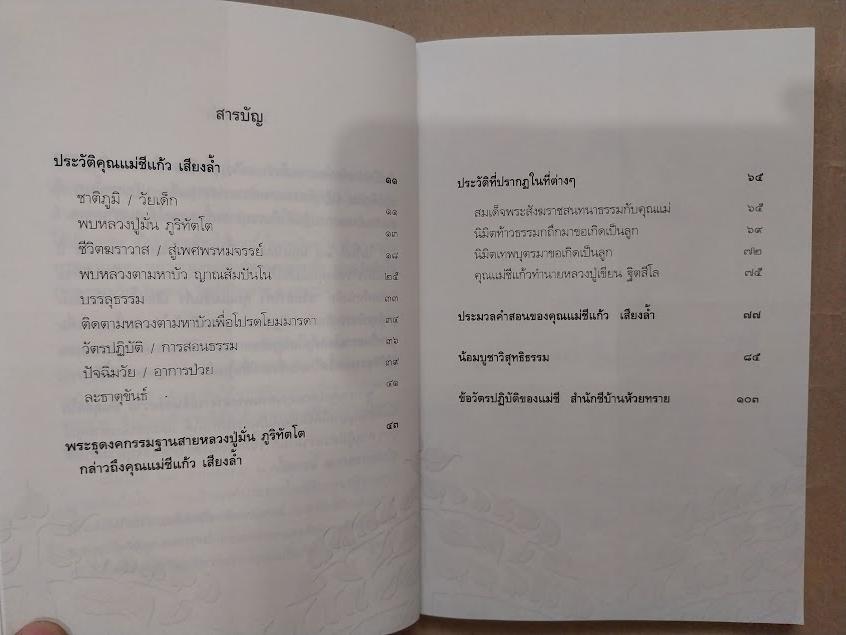 สารบัญ
ประวัติคุณแม่ชีแก้ว เสียงล้ำ ๑๑
ชาติภูมิ / วัยเด็ก ๑๑
พบหลวงปู่มั่น ภูริทัตโต ๑๓
ชีวิตฆราวาส / สู่เพศพรหมจรรย์ ๑๘
พบหลวงตามหาบัว ญาณสัมปันโน ๒๕
บรรลุธรรม ๓๓
ติดตามหลวงตามหาบัวเพื่อโปรดโยมมารดา ๓๔
วัตรปฏิบัติ / การสอนธรรม ๓๖
ปัจฉิมวัย / อาการป่วย ๓๙
ละธาตุขันธ์ ๔๑
พระธุดงคกรรมฐานสายหลวงปู่มั่น ภูริทัตโต ๔๓
กล่าวถึงคุณแม่ชีแก้ว เสียงล้ำ
ประวัติที่ปรากฏในที่ต่างๆ ๖๕
สมเด็จพระสังฆราชสนทนาธรรมกับคุณแม่ ๖๕
นิมิตท้าวธรรมกถึกมาขอเกิดเป็นลูก ๖๙
นิมิตเทพบุตรมาขอเกิดเป็นลูก ๗๒
คุณแม่ชีแก้วทำนายหลวงปู่เขียน ฐิตสีโล ๗๕
ประมวลคำสอนของคุณแม่ชีแก้ว เสียงล้ำ ๗๗
น้อมบูชาวิสุทธิธรรม ๘๕
ข้อวัตรปฏิบัติของแม่ชี สำนักชีบ้านห้วยทราย ๑๐๓